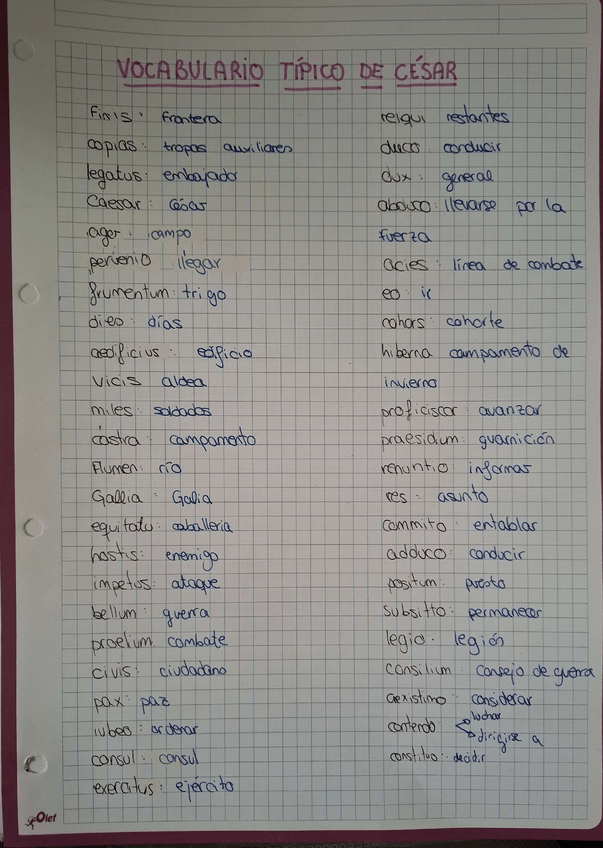 VOCABULARIO TÍPICO DE CÉSAR
Finis: frontera
copias: tropas auxiliares
legatus: embajador
Caesar: César
ager: campo
pervenio llegar
frumentum: trigo
dies: días
aedificius: edificio
vicis aldea
miles: soldados
castra: campamento
Flumen: río
Gallia: Galia
equitatu: caballeria
hostis: enemigo
impetus: ataque
bellum: guerra
proelium combate
civis: ciudadano
pax: paz
iubeo: ordenar
consul: consul
exercitus: ejército
reiqui restantes
duco conducir
dux: general
abduco: llevarse por la
fuerza
acies: línea de combate
eo: ir
cohors: cohorte
hiberna campamento de
invierno
proficiscor avanzar
praesidium: guarnición
renuntio: informar
res: asunto
commito: entablar
adduco: conducir
positum: puesto
subsitto: permanecer
legio: legión
consilium: consejo de guerra
aexistimo: considerar
contendo: luchar
dirigirse a
constituo: decidir
Olef